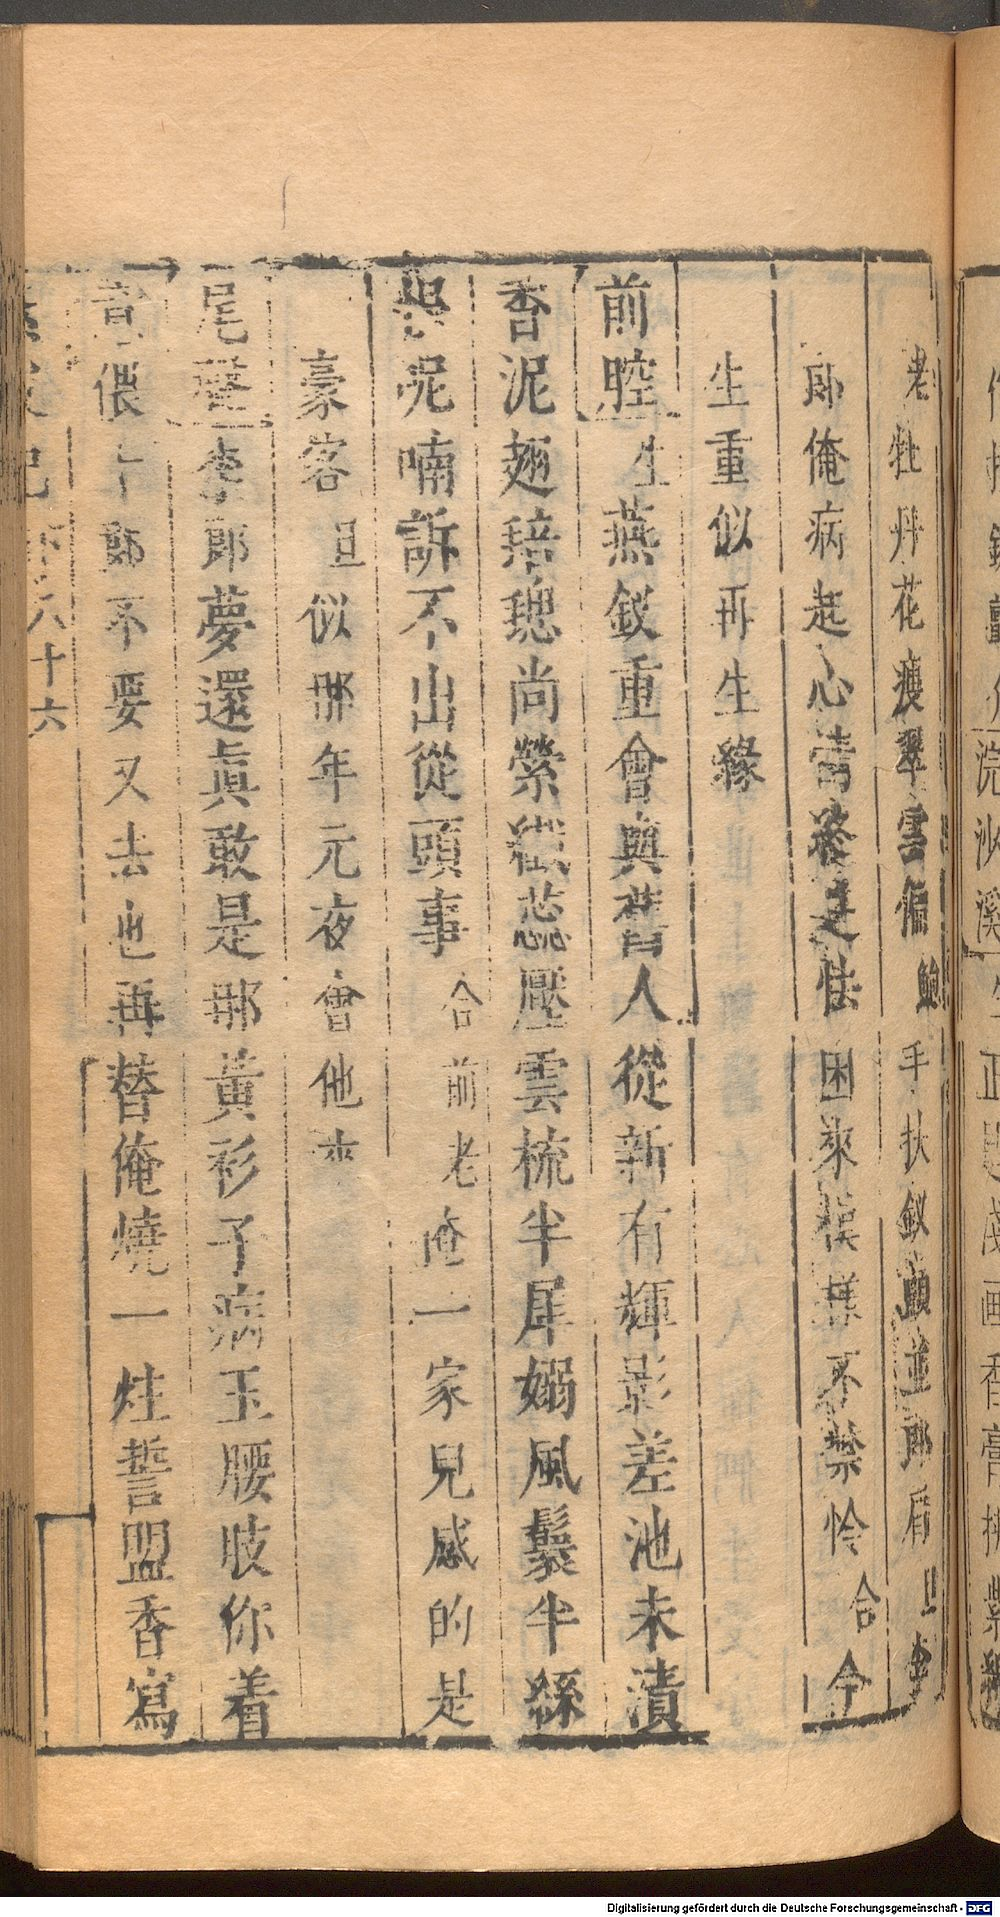 老牡丹花瘦翠雲偏鮑手扶釵顫並郎肩旦李
郎俺病起心情終是怯困來模樣不禁怜合今
生重似再生緣
前腔生燕釵重會與舊人從新有輝影差池未漬
香泥翅踣璁尚縈纖蕊壓雲梳半犀嫋風鬟半絲
呢喃訴不出從頭事合前老俺一家兒感的是
豪客旦似那年元夜會他來
尾聲李郎夢還真敢是那黃衫子病玉腰肢你着
意偎鄭不要又去也再替俺燒一炷誓盟香寫
八十六
浣沙溪
Digitalisierung gefördert durch die Deutsche Forschungsgemeinschaft - DFG